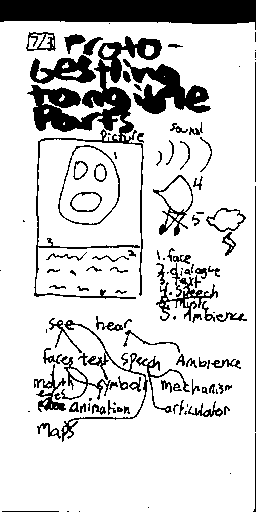 7/3 Proto-
bestiling
tangible
Parts
Picture
Sound
1
4
5
3
2
1. face
2. dialogue
3. Text
4. Speech
5. Music
5. Ambience
see hear
faces text speech Ambience
mouth symbols mechanism
eyes
animation articulator
Maps